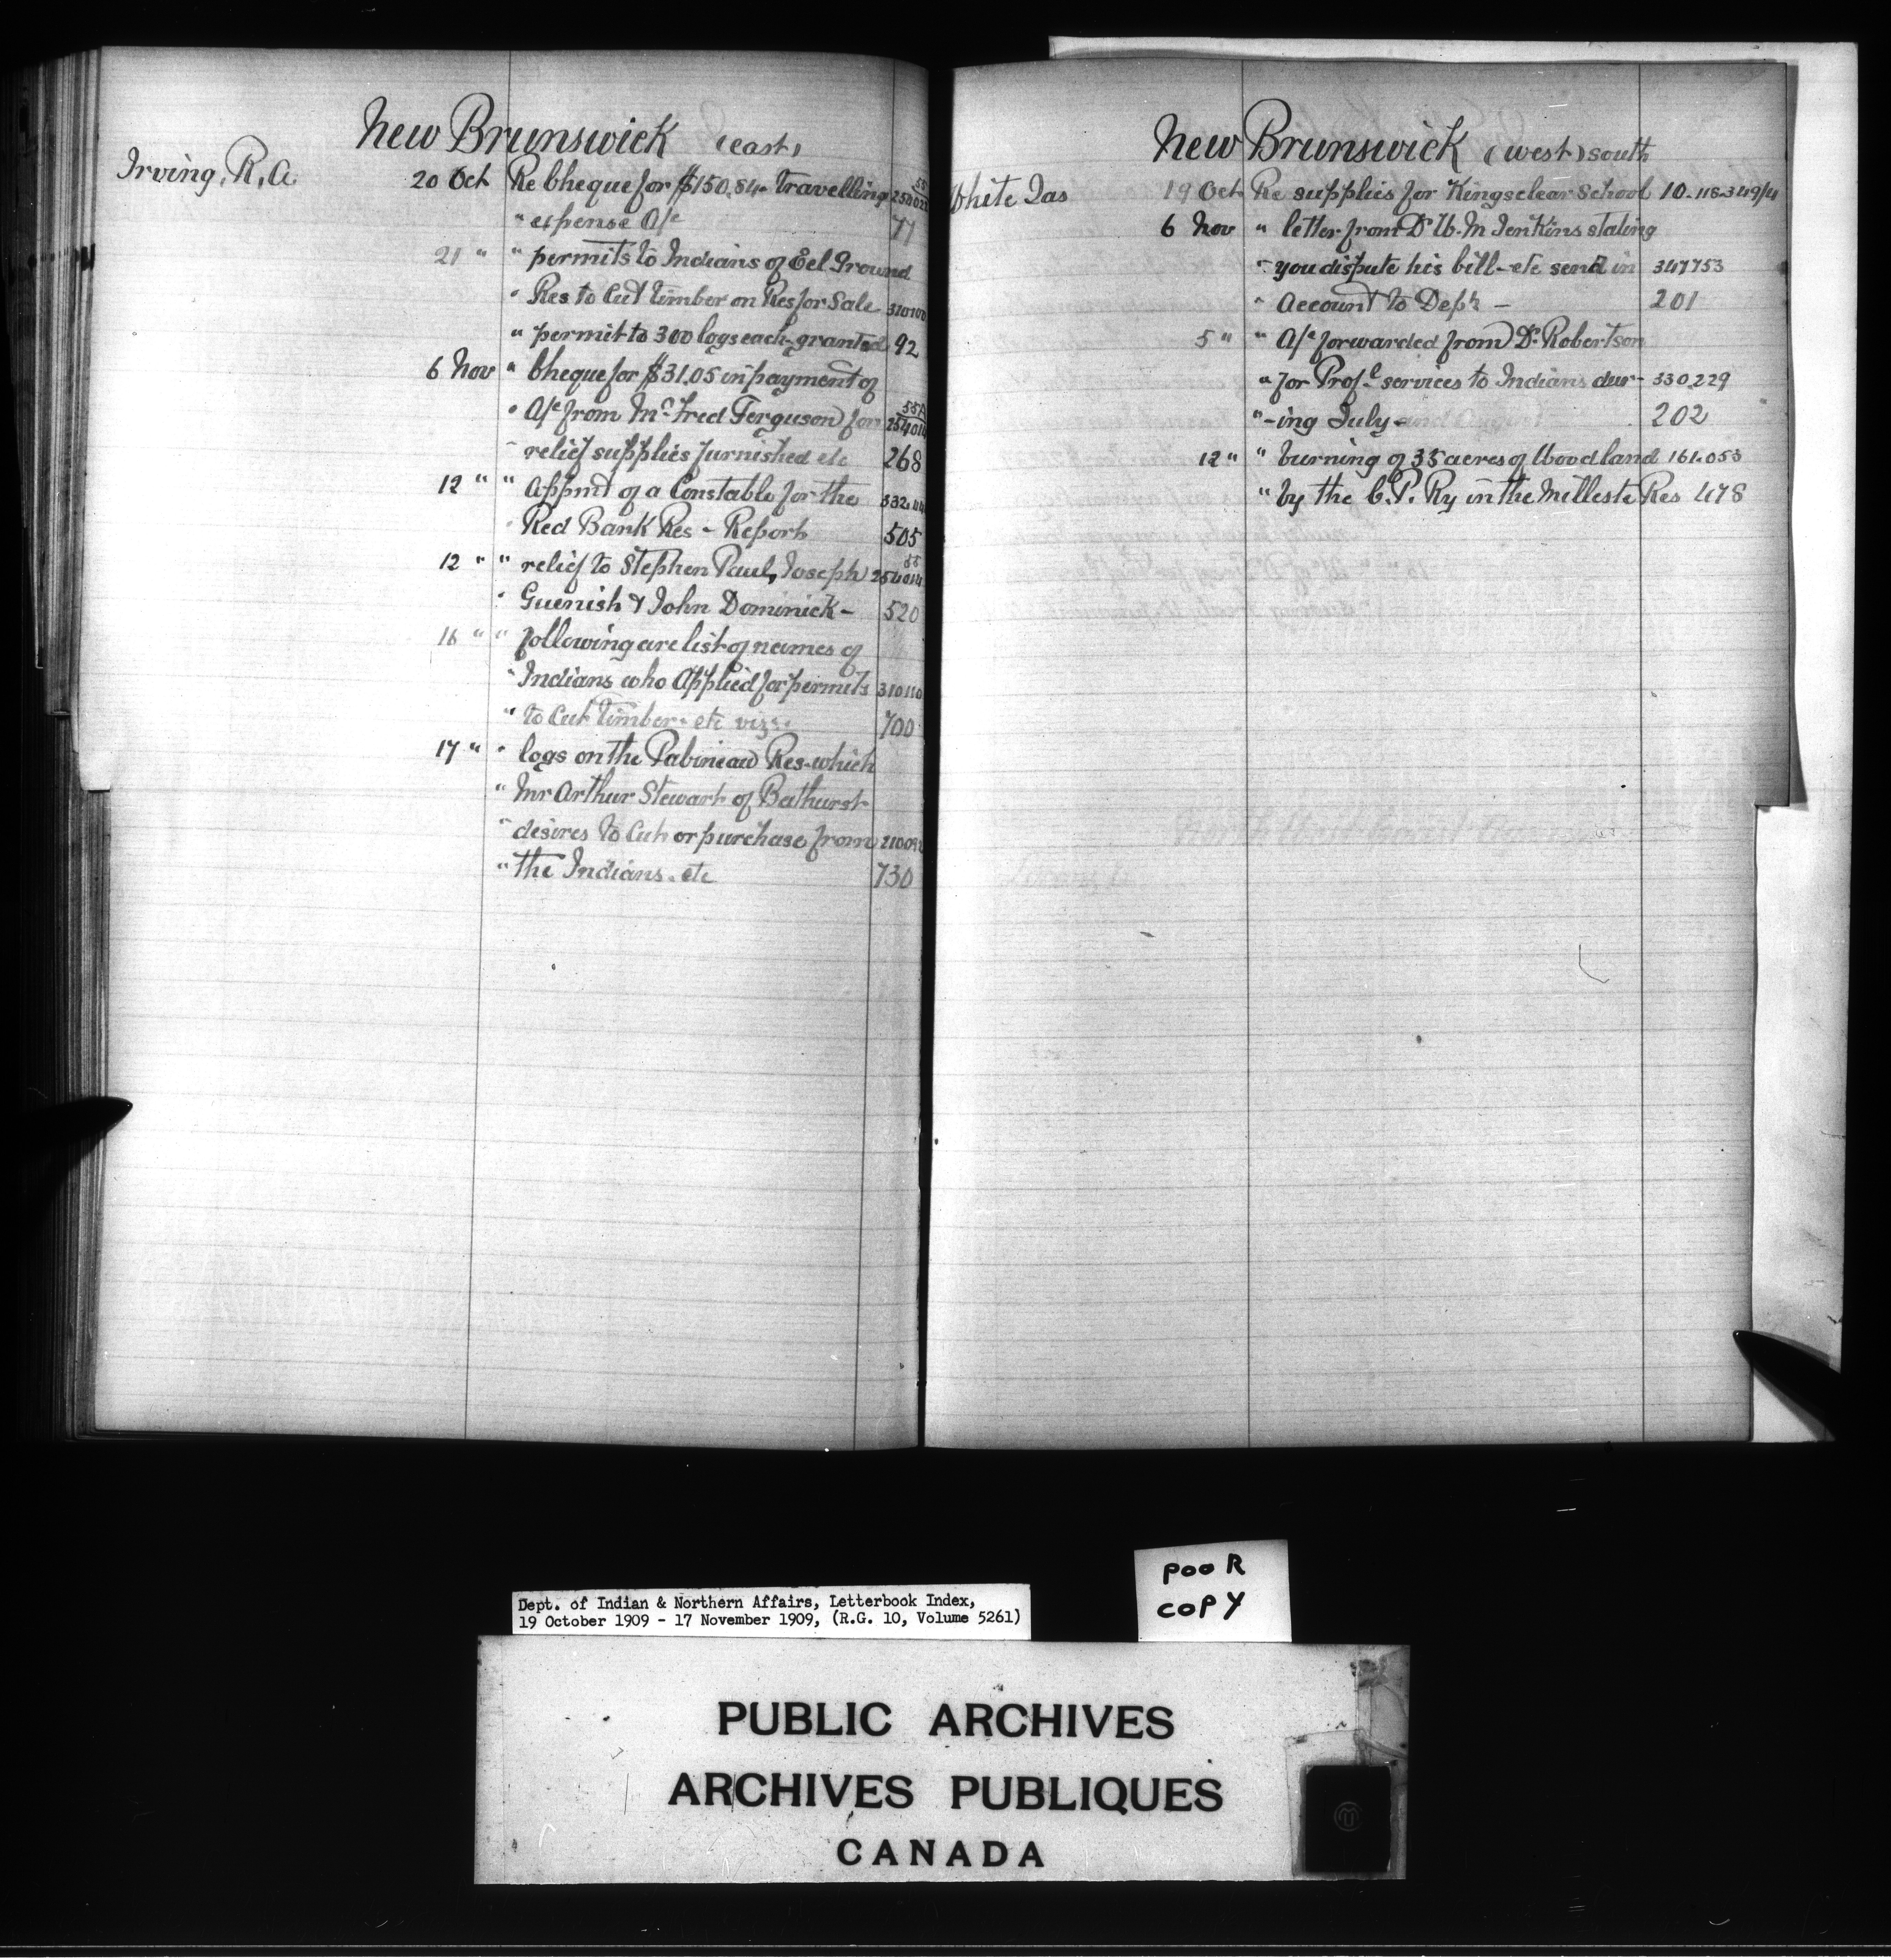 New Brunswick (east)
Irving, R. A. 20 Oct Re Cheque for $150.84 - travelling
" expense A/c 77
21 " " permits to Indians of Eel Ground
" Res to Cut timber on Res for Sale 310100
" permit to 300 logs each - granted 92
6 Nov " Cheque for $31.05 in payment of
" A/c from Mr Fred Ferguson for 254014
" relief supplies furnished etc 268
12 " " Appmt of a Constable for the
" Red Bank Res - Report 505
12 " " relief to Stephen Paul, Joseph 254014
" Guenish & John Dominick - 520
16 " " following are list of names of
" Indians who Applied for permits 310110
" to Cut timber - etc viz: 700
17 " " logs on the Pabineau Res - which
" Mr Arthur Stewart of Bathurst
" desires to Cut or purchase from
" the Indians. etc 730
New Brunswick (west) south
White Jas 19 Oct Re supplies for Kingsclear School 10-118-349/4
6 Nov " letter from Dr W. M Jenkins stating
" you dispute his bill - etc send in 347753
" Account to Dept - 201
5 " " A/c forwarded from Dr Robertson
" for Profl services to Indians dur- 330,229
" -ing July - and August 202
12 " " burning of 35 acres of Woodland 161.053
" by the C. P. Ry in the Milleste Res 478
POOR
COPY
Dept. of Indian & Northern Affairs, Letterbook Index,
19 October 1909 - 17 November 1909, (R.G. 10, Volume 5261)
PUBLIC ARCHIVES
ARCHIVES PUBLIQUES
CANADA